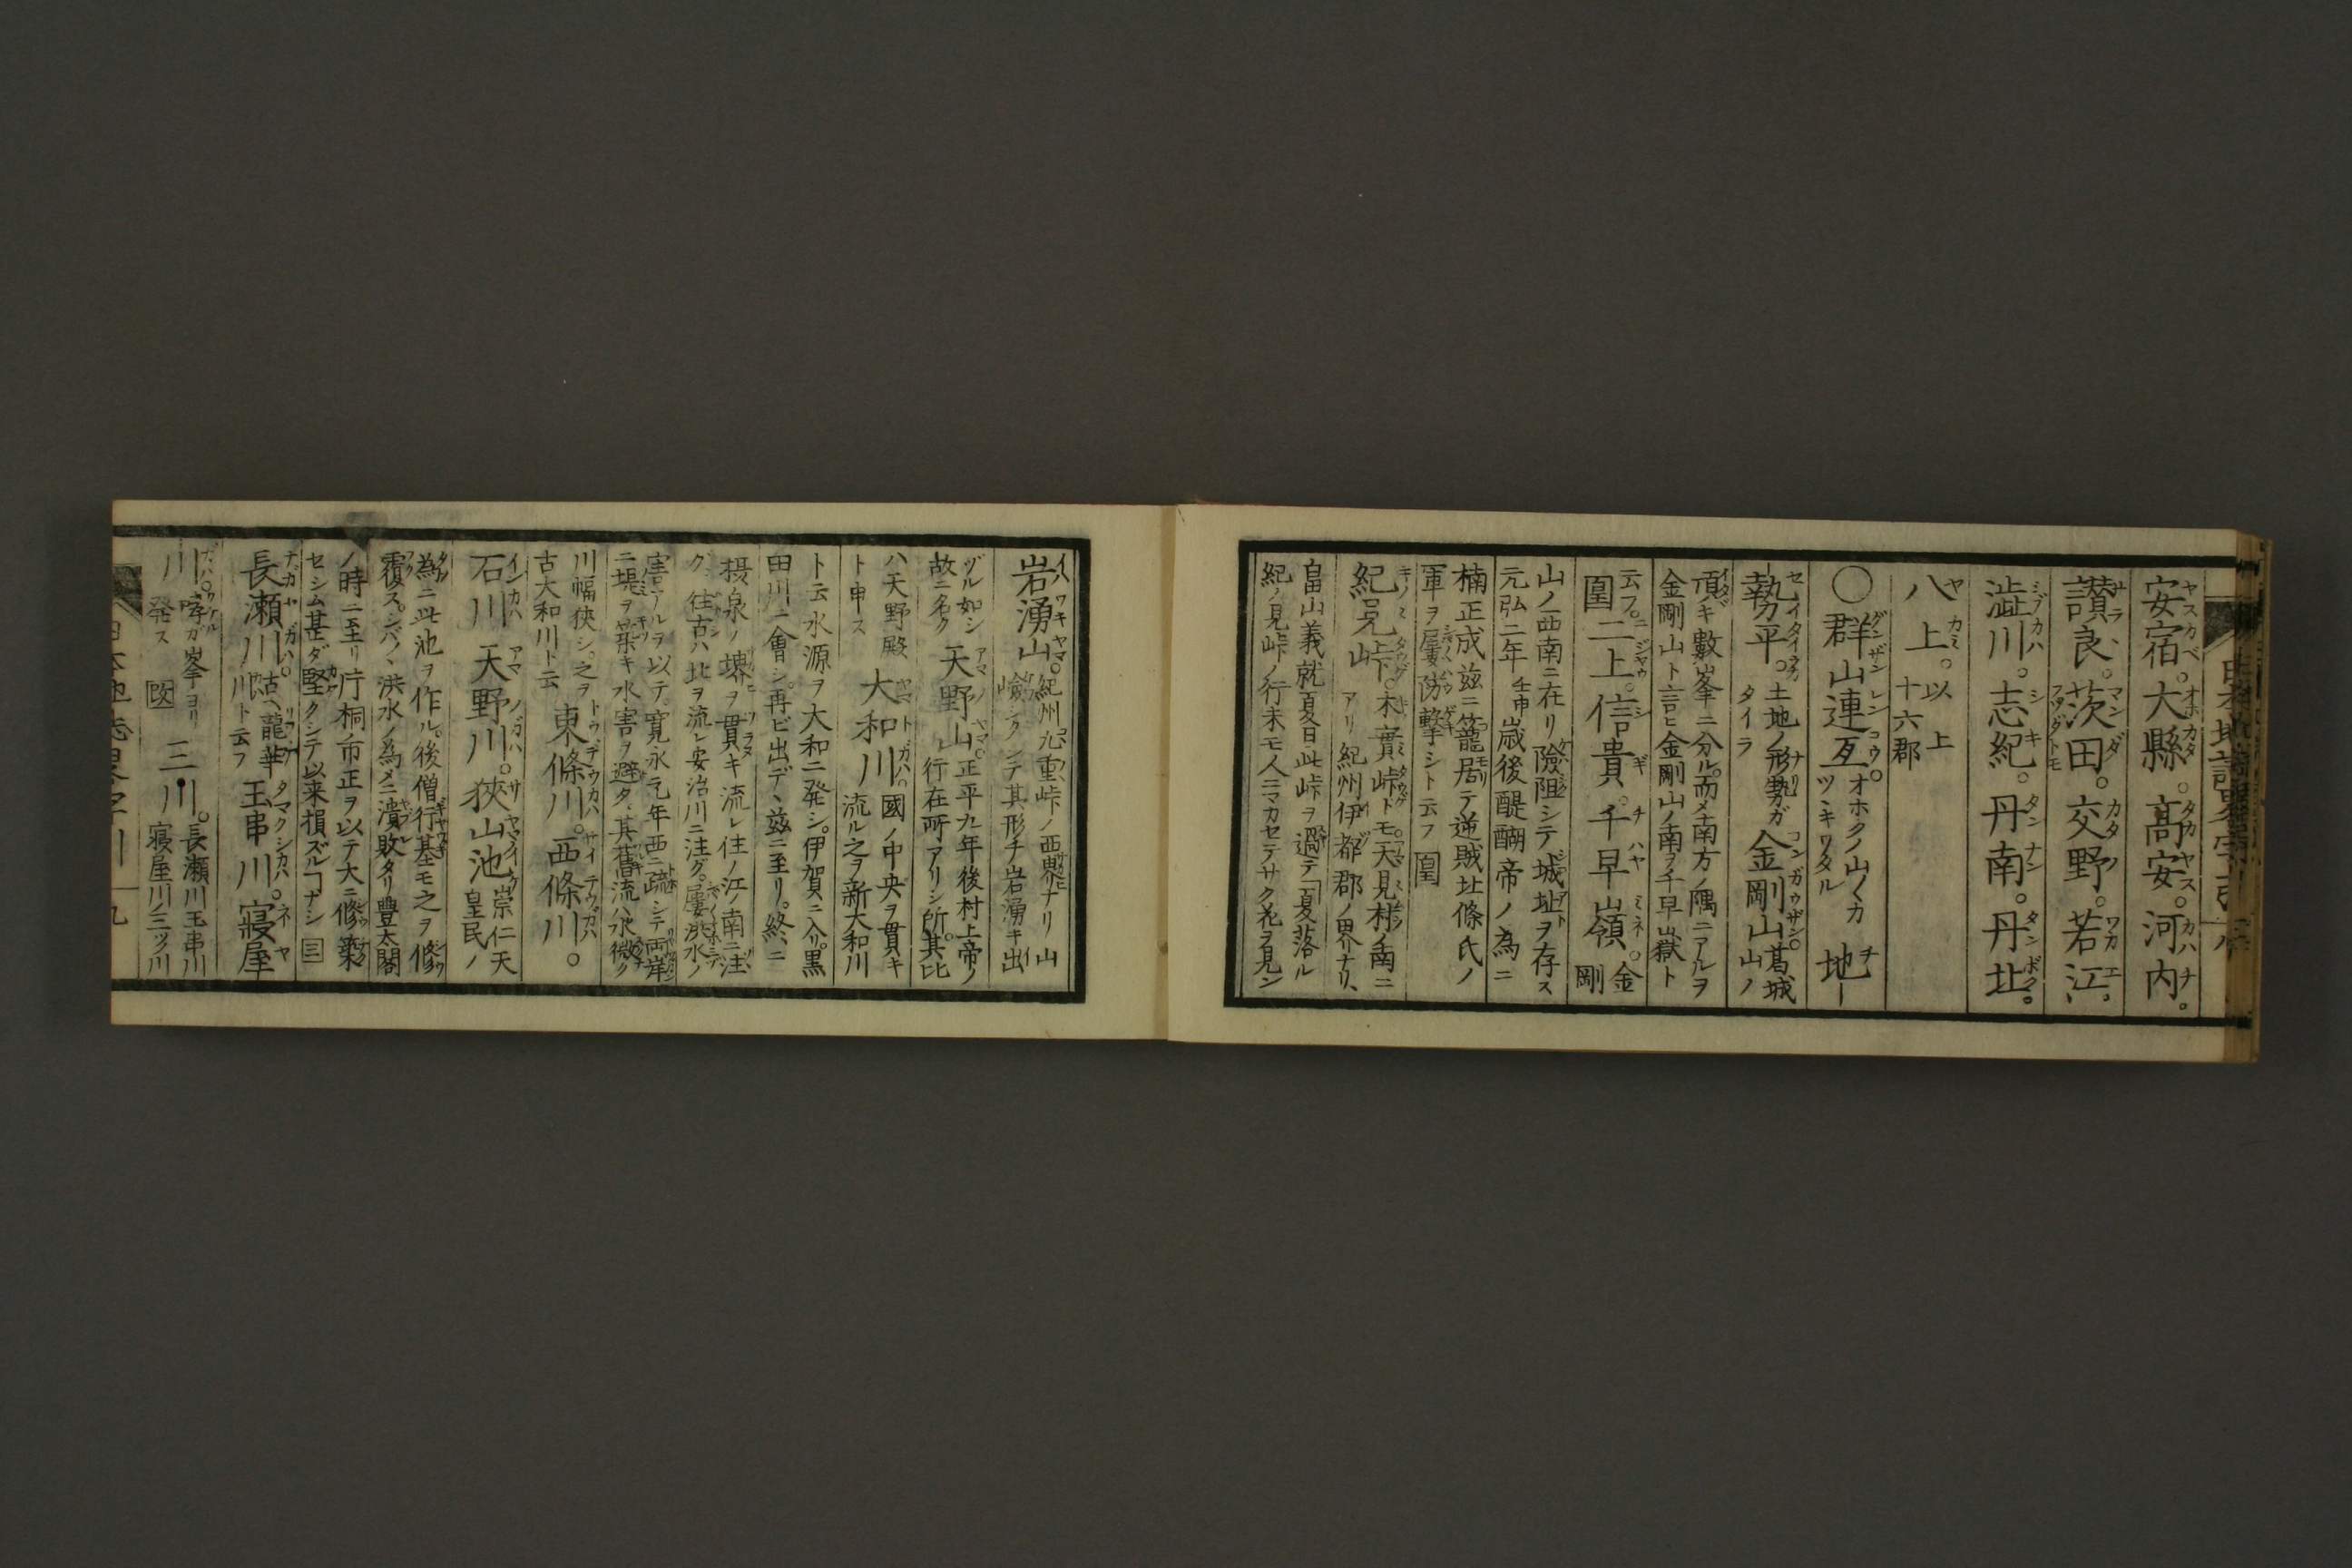 安宿。大縣。高安。河内。
讃良。茨田。交野。若江。
澁川。志紀。丹南。丹北。
八上。以上十六郡
〇群山連亙。オホクノ山〱カツヾキワタル 地ー
勢平。土地ノ形勢ガタイラ 金剛山。葛城山ノ
頂ギ數峯ニ分ル。而メ南方ノ隅ニアルヲ
金剛山ト言ヒ金剛山ノ南ヲ千早嶽ト
云フ。圍 二上。信貴。千早嶺。金剛
山ノ西南ニ在リ險阻シテ城址ヲ存ス
元弘二年壬申歳後醍醐帝ノ為ニ
楠正成茲ニ籠居テ逆賊北條氏ノ
軍ヲ屢防撃シト云フ
紀見峠。木實峠トモ。天見村ノ南ニアリ紀州伊都郡ノ界ナリ、
畠山義就夏日此峠ヲ過テ「夏落ル
紀ノ見峠ノ行末モ人ニマカセテサク花ヲ見ン
岩湧山。紀州九重峠ノ西界ナリ山嶮シクシテ其形チ岩湧キ出
ヅル如シ故ニ名ク 天野山。正平九年後村上帝ノ行在所アリシ所其比
ハ天野殿ト申ス 大和川 國ノ中央ヲ貫キ流ル之ヲ新大和川
ト云水源ヲ大和ニ発シ。伊賀ニ入リ。黒
田川ニ會シ。再ビ出デ、茲ニ至リ。終ニ
摂泉ノ堺ヲ貫キ流レ住ノ江ノ南ニ注
グ往古ハ北ヲ流レ安治川ニ注グ。屢洪水ノ
害アルヲ以テ。寛永元年西ニ疏シテ両岸
ニ堤ヲ築キ水害ヲ避ク。其舊流ハ水微ク
川幅狹シ。之ヲ古大和川ト云 東條川。西條川。
石川 天野川。狹山池 崇仁天皇民ノ
為ニ此池ヲ作ル。後僧行基モ之ヲ修
覆ス。シバ〱洪水ノ為メニ潰敗タリ豊太閤
ノ時ニ至リ片桐市正ヲ以テ大ニ修築
セシム甚ダ堅クシテ以来損ズルヿナシ
長瀬川。龍華川ト云フ 玉串川。寢屋
川。峯ヨリ発ス 三川。長瀬川玉串川寝屋川ノ三ツ川